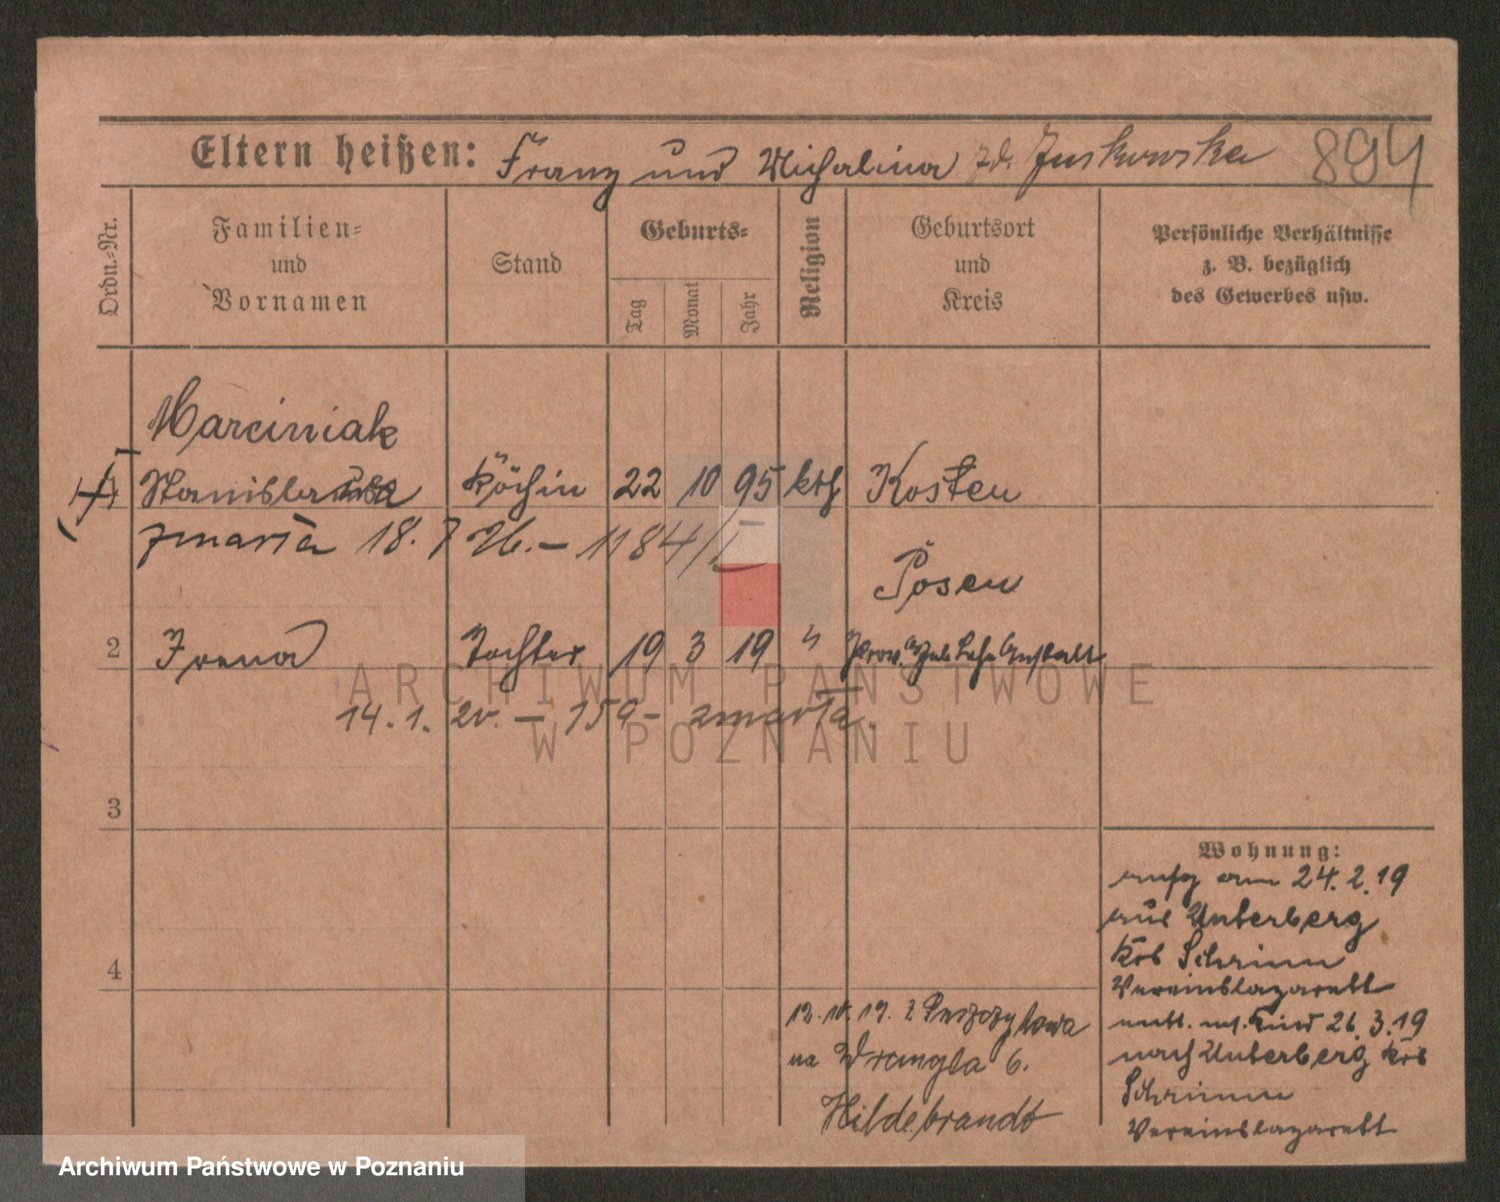 Eltern heißen: Franz und Michalina zd. Juskowska 894
Ordn.-Nr.
Familien- und Vornamen
Stand
Geburts-
Tag
Monat
Jahr
Religion
Geburtsort und Kreis
Persönliche Verhältnisse z. B. bezüglich des Gewerbes usw.
Marciniak
Stanislawa Köchin 22 10 95 kth Kosten
zmarła 18. 7 26. – 1184/I
Posen
2 Irena Tochter 19 3 19 " Prov. Heb Lehr Anstalt
14. 1. 20. – 159 – zmarła.
3
4
Wohnung:
aufg am 24.2.19
aus Unterberg
Krs Schrimm
Vereinslazarett
entl. m. Kind 26.3.19
nach Unterberg Krs
Schrimm
Vereinslazarett
12.10.19. z
na Wrangla 6.
Hildebrandt
ARCHIWUM PAŃSTWOWE
W POZNANIU
Archiwum Państwowe w Poznaniu